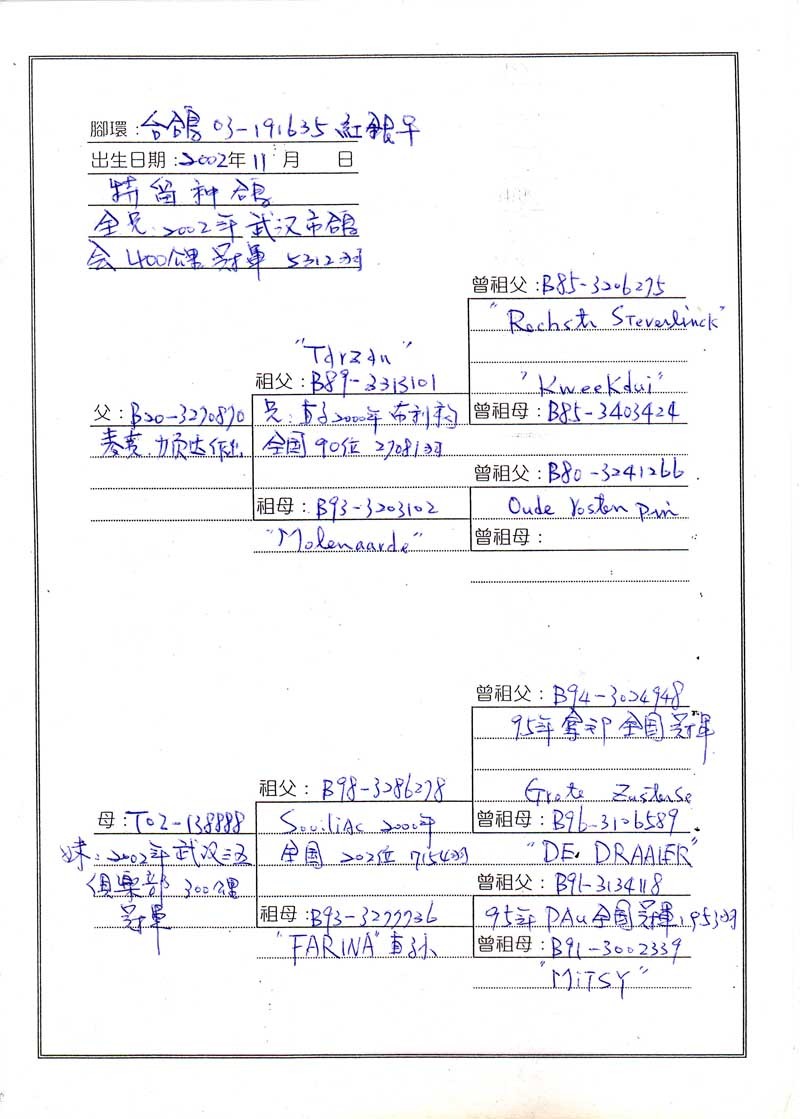 腳環：台鴿 03-191635 紅銀平
出生日期：2002年 11 月 日
特留种鴿
全兄：2002年武汉市鴿
会400公里冠軍 5312羽
曾祖父：B85-3206275
"Rechstr Steverlinck"
"Tarzan"
祖父：B89-3313101
"Kweekdui"
曾祖母：B85-3403424
父：B20-3270870
兄：直子2000年布利約
全国90位 27081羽
曾祖父：B80-3241266
祖母：B93-3203102
Oude Vosten Duin
"Molenaarde"
曾祖母：
曾祖父：B94-3024948
95年 全国冠軍
祖父：B98-3286278
Grote Zustense
母：T02-138888
Souiliac 2000年
曾祖母：B96-3106589
妹：2002年武汉三五
全国 202位 7154羽
"DE DRAAIER"
俱樂部 300公里
曾祖父：B91-3134118
冠軍
祖母：B93-3277736
95年 PAu全国冠軍1953羽
"FARINA"直孙
曾祖母：B91-3002339
"MiTSY"